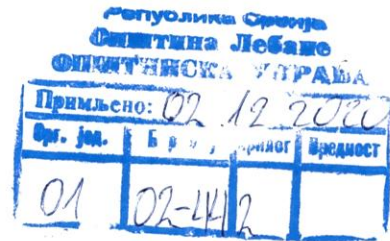 Република Србија
Општина Лебане
ОПШТИНСКА УПРАВА
Примљено: 02 12 2020
Орг. јед. Број Прилог Вредност
01 02-442